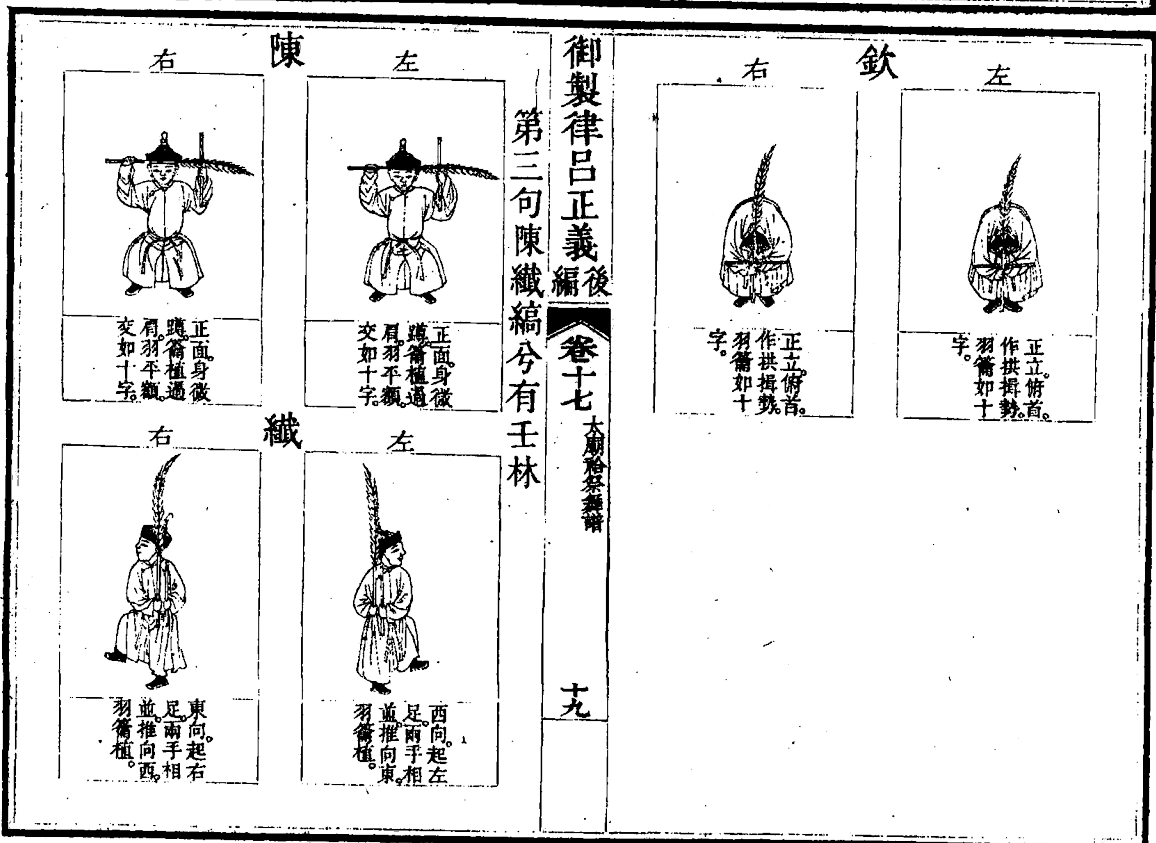 欽
左
正立。俯首。
作拱揖勢。
羽籥如十
字。
右
正立。俯首。
作拱揖勢。
羽籥如十
字。
御製律呂正義後編
卷十七
太廟祫祭舞譜
十九
第三句陳纖縞兮有壬林
陳
左
正面。身微
蹲。籥植過
肩。羽平額。
交如十字。
右
正面。身微
蹲。籥植過
肩。羽平額。
交如十字。
纖
左
西向。起左
足。兩手相
並。推向東。
羽籥植。
右
東向。起右
足。兩手相
並。推向西。
羽籥植。